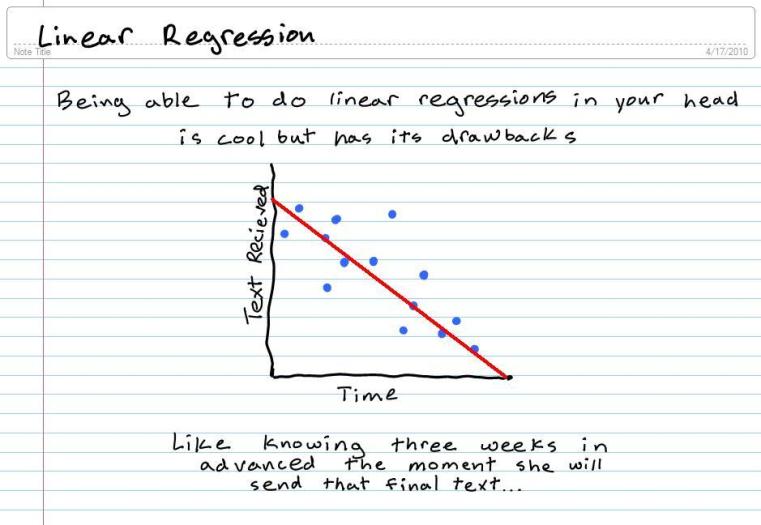 Linear Regression
Note Title
4/17/2010
Being able to do linear regressions in your head
is cool but has its drawbacks
Text Recieved
Time
Like knowing three weeks in
advanced the moment she will
send that final text...